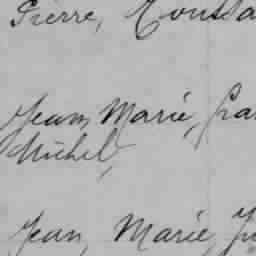 Pierre, Toussa
Jean, Marie, fra
Michel,
Jean, Marie,